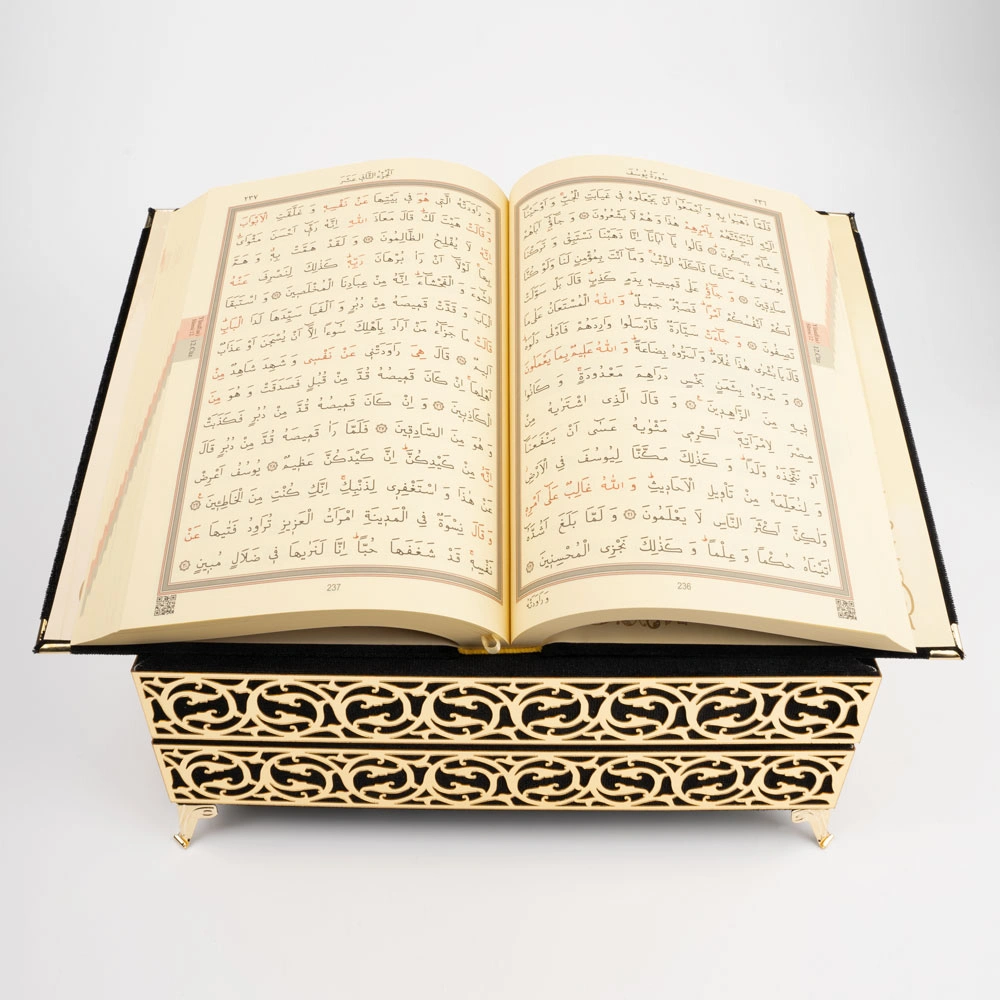 سُورَةُ يُوسُفَ
٢٣٦
فَلَمَّا ذَهَبُوا بِهِ وَ اَجْمَعُوا اَنْ يَجْعَلُوهُ فِي غَيَابَتِ الْجُبِّ وَ اَوْحَيْنَا
اِلَيْهِ لَتُنَبِّئَنَّهُمْ بِاَمْرِهِمْ هٰذَا وَ هُمْ لَا يَشْعُرُونَ ۝ وَ جَاؤُ اَبَاهُمْ
عِشَاءً يَبْكُونَ ۝ قَالُوا يَا اَبَانَا اِنَّا ذَهَبْنَا نَسْتَبِقُ وَ تَرَكْنَا
يُوسُفَ عِنْدَ مَتَاعِنَا فَاَكَلَهُ الذِّئْبُ وَ مَا اَنْتَ بِمُؤْمِنٍ لَنَا وَ لَوْ كُنَّا
صَادِقِينَ ۝ وَ جَاؤُ عَلٰى قَمِيصِهِ بِدَمٍ كَذِبٍ قَالَ بَلْ سَوَّلَتْ
لَكُمْ اَنْفُسُكُمْ اَمْراً فَصَبْرٌ جَمِيلٌ وَ اللّٰهُ الْمُسْتَعَانُ عَلٰى مَا
تَصِفُونَ ۝ وَ جَاءَتْ سَيَّارَةٌ فَاَرْسَلُوا وَارِدَهُمْ فَاَدْلٰى دَلْوَهُ
قَالَ يَا بُشْرٰى هٰذَا غُلَامٌ وَ اَسَرُّوهُ بِضَاعَةً وَ اللّٰهُ عَلِيمٌ بِمَا يَعْمَلُونَ
۝ وَ شَرَوْهُ بِثَمَنٍ بَخْسٍ دَرَاهِمَ مَعْدُودَةٍ وَ كَانُوا
فِيهِ مِنَ الزَّاهِدِينَ ۝ وَ قَالَ الَّذِي اشْتَرٰيهُ مِنْ
مِصْرَ لِامْرَاَتِهِ اَكْرِمِي مَثْوٰيهُ عَسٰى اَنْ يَنْفَعَنَا
اَوْ نَتَّخِذَهُ وَلَداً وَ كَذٰلِكَ مَكَّنَّا لِيُوسُفَ فِي الْاَرْضِ
وَ لِنُعَلِّمَهُ مِنْ تَاْوِيلِ الْاَحَادِيثِ وَ اللّٰهُ غَالِبٌ عَلٰى اَمْرِهِ
وَلٰكِنَّ اَكْثَرَ النَّاسِ لَا يَعْلَمُونَ ۝ وَ لَمَّا بَلَغَ اَشُدَّهُ
اٰتَيْنَاهُ حُكْماً وَ عِلْماً وَ كَذٰلِكَ نَجْزِي الْمُحْسِنِينَ ۝
236
وَ رَاوَدَتْهُ
اَلْجُزْءُ الثَّانِي عَشَرَ
٢٣٧
وَ رَاوَدَتْهُ الَّتِي هُوَ فِي بَيْتِهَا عَنْ نَفْسِهِ وَ غَلَّقَتِ الْاَبْوَابَ
وَ قَالَتْ هَيْتَ لَكَ قَالَ مَعَاذَ اللّٰهِ اِنَّهُ رَبِّي اَحْسَنَ مَثْوَايَ
اِنَّهُ لَا يُفْلِحُ الظَّالِمُونَ ۝ وَ لَقَدْ هَمَّتْ بِهِ وَ هَمَّ
بِهَا لَوْلَا اَنْ رَاٰ بُرْهَانَ رَبِّهِ كَذٰلِكَ لِنَصْرِفَ عَنْهُ
السُّوءَ وَ الْفَحْشَاءَ اِنَّهُ مِنْ عِبَادِنَا الْمُخْلَصِينَ ۝ وَ اسْتَبَقَا
الْبَابَ وَ قَدَّتْ قَمِيصَهُ مِنْ دُبُرٍ وَ اَلْفَيَا سَيِّدَهَا لَدَا الْبَابِ
قَالَتْ مَا جَزَاءُ مَنْ اَرَادَ بِاَهْلِكَ سُوءاً اِلَّا اَنْ يُسْجَنَ اَوْ عَذَابٌ
اَلِيمٌ ۝ قَالَ هِيَ رَاوَدَتْنِي عَنْ نَفْسِي وَ شَهِدَ شَاهِدٌ مِنْ
اَهْلِهَا اِنْ كَانَ قَمِيصُهُ قُدَّ مِنْ قُبُلٍ فَصَدَقَتْ وَ هُوَ مِنَ
الْكَاذِبِينَ ۝ وَ اِنْ كَانَ قَمِيصُهُ قُدَّ مِنْ دُبُرٍ فَكَذَبَتْ
وَ هُوَ مِنَ الصَّادِقِينَ ۝ فَلَمَّا رَاٰ قَمِيصَهُ قُدَّ مِنْ دُبُرٍ قَالَ
اِنَّهُ مِنْ كَيْدِكُنَّ اِنَّ كَيْدَكُنَّ عَظِيمٌ ۝ يُوسُفُ اَعْرِضْ
عَنْ هٰذَا وَ اسْتَغْفِرِي لِذَنْبِكِ اِنَّكِ كُنْتِ مِنَ الْخَاطِئِينَ ۝
وَ قَالَ نِسْوَةٌ فِي الْمَدِينَةِ امْرَاَتُ الْعَزِيزِ تُرَاوِدُ فَتٰيهَا عَنْ
نَفْسِهِ قَدْ شَغَفَهَا حُبًّا اِنَّا لَنَرٰيهَا فِي ضَلَالٍ مُبِينٍ ۝
237